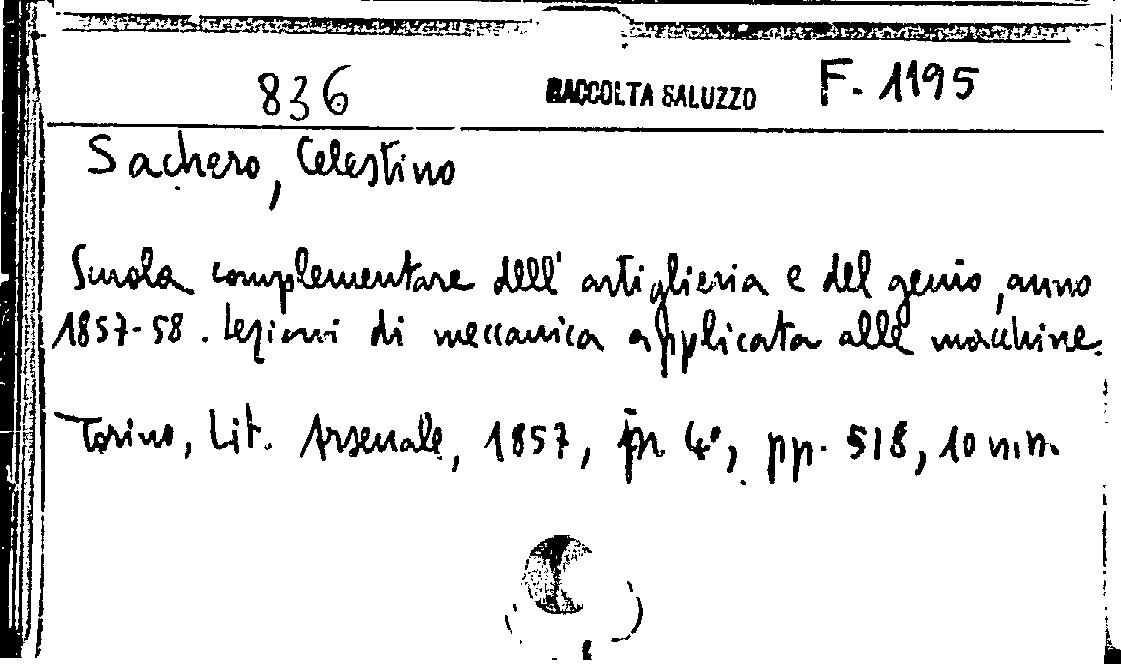 836 RACCOLTA SALUZZO F. 1195
Sachero, Celestino
Scuola complementare dell' artiglieria e del genio, anno
1857-58. Lezioni di meccanica applicata alle macchine.
Torino, Lit. Arsenale, 1857, in 4°, pp. 518, 10 n.n.